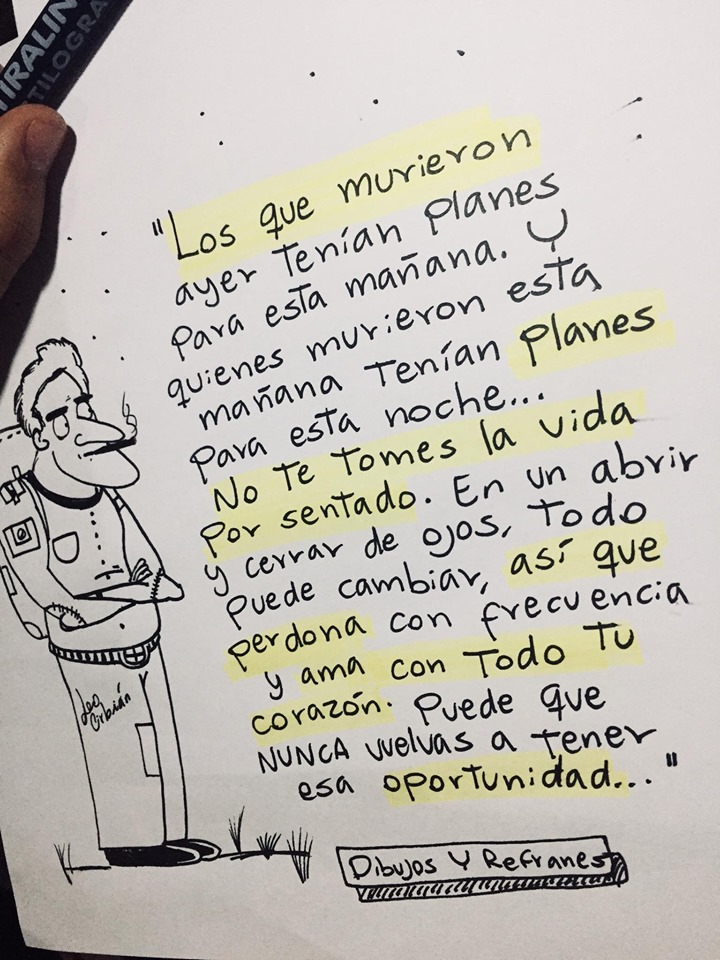 TIRALIN
TILOGRA
"Los que murieron
ayer Tenían Planes
Para esta mañana. Y
quienes murieron esta
mañana Tenían Planes
Para esta noche...
No Te Tomes la vida
Por sentado. En un abrir
y cerrar de ojos, Todo
Puede cambiar, así que
Perdona con frecuencia
y ama con Todo Tu
corazón. Puede que
NUNCA vuelvas a Tener
esa oportunidad..."
Leo
Dibujos Y Refranes